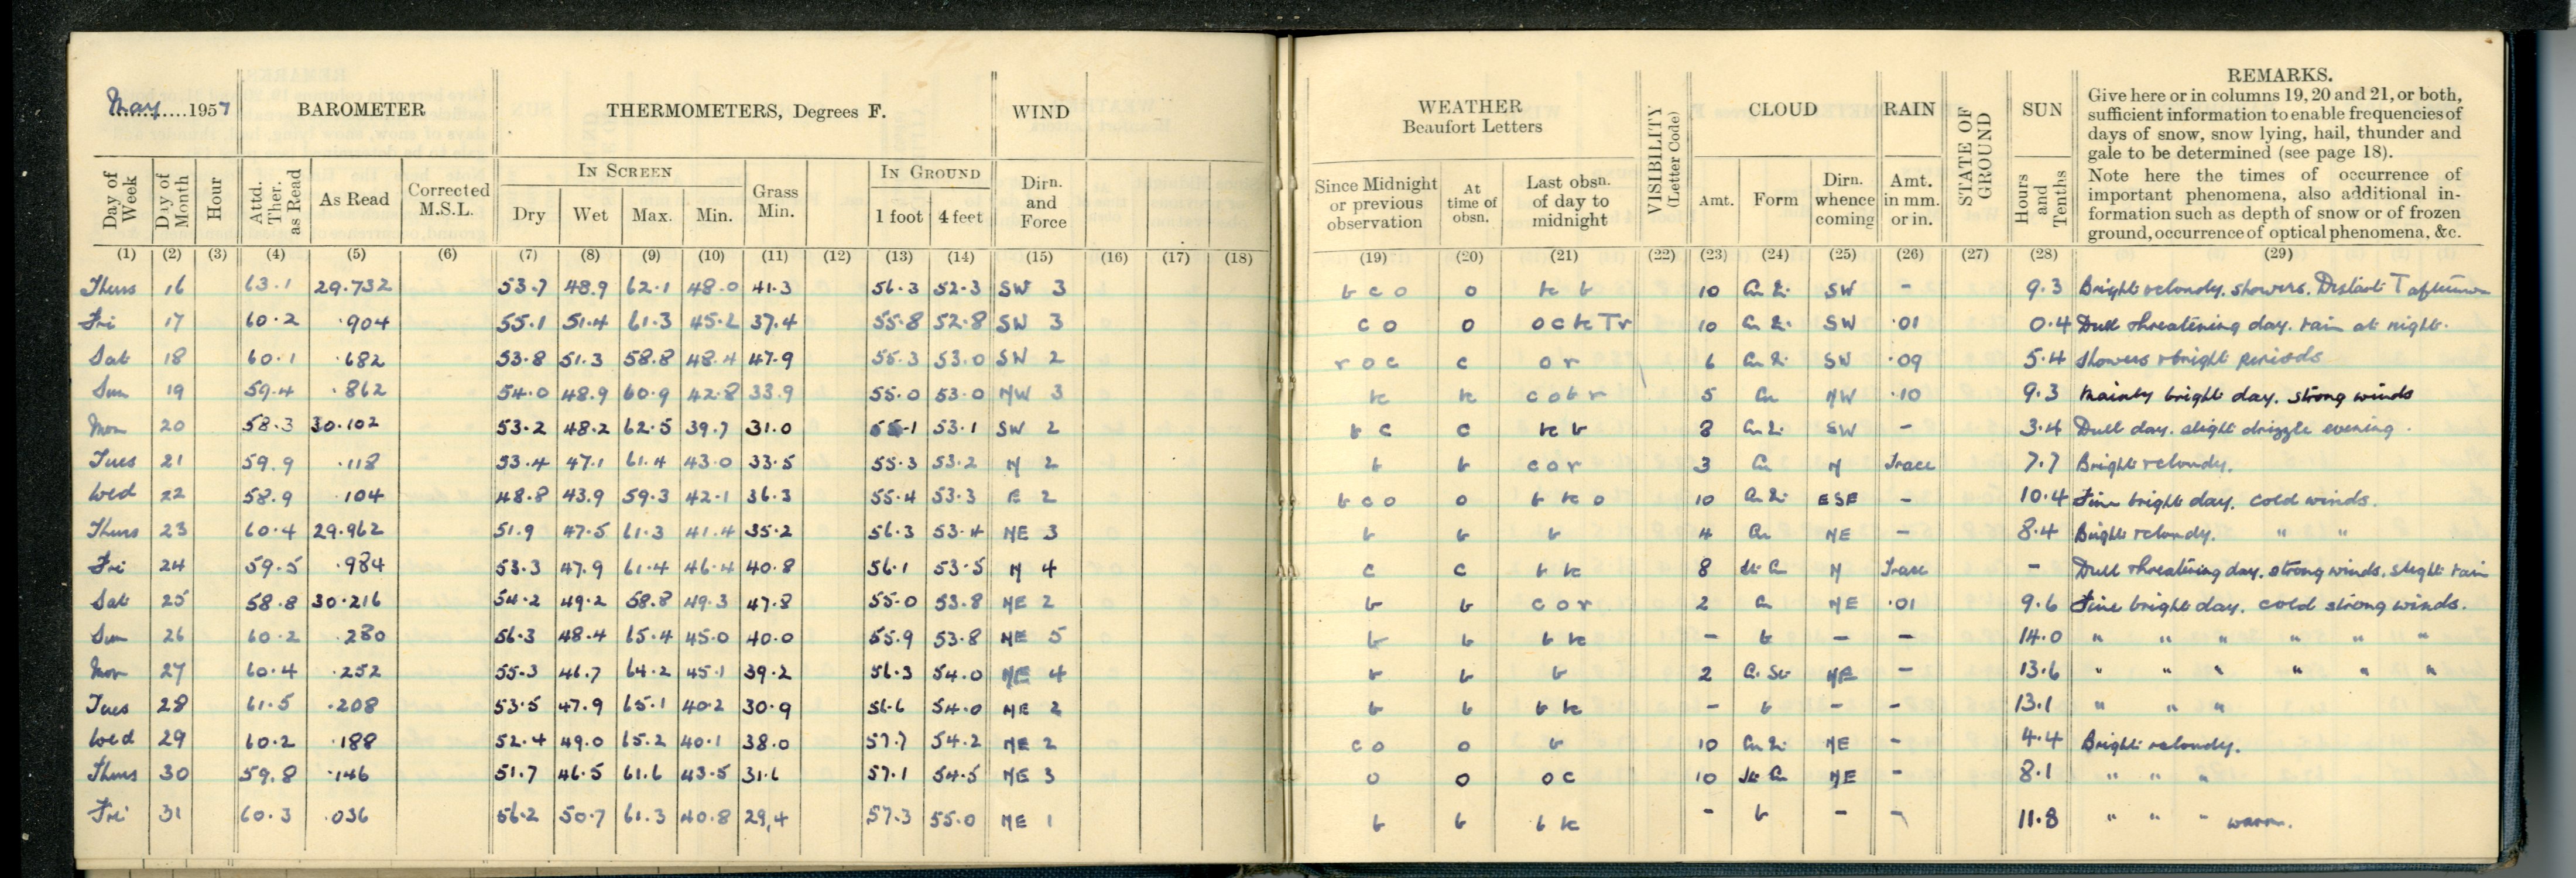 May 1957 BAROMETER THERMOMETERS, Degrees F. WIND
Day of Week Day of Month Hour Attd. Ther. as Read As Read Corrected M.S.L. IN SCREEN Dry Wet Max. Min. Grass Min. IN GROUND 1 foot 4 feet Dirn. and Force
(1) (2) (3) (4) (5) (6) (7) (8) (9) (10) (11) (12) (13) (14) (15) (16) (17) (18)
Thurs 16 63.1 29.732 53.7 48.9 62.1 48.0 41.3 56.3 52.3 SW 3
Fri 17 60.2 .904 55.1 51.4 61.3 45.2 37.4 55.8 52.8 SW 3
Sat 18 60.1 .682 53.8 51.3 58.8 48.4 47.9 55.3 53.0 SW 2
Sun 19 59.4 .862 54.0 48.9 60.9 42.8 33.9 55.0 53.0 NW 3
Mon 20 58.3 30.102 53.2 48.2 62.5 39.7 31.0 55.1 53.1 SW 2
Tues 21 59.9 .118 53.4 47.1 61.4 43.0 33.5 55.3 53.2 N 2
Wed 22 58.9 .104 48.8 43.9 59.3 42.1 36.3 55.4 53.3 E 2
Thurs 23 60.4 29.962 51.9 47.5 61.3 41.4 35.2 56.3 53.4 NE 3
Fri 24 59.5 .984 53.3 47.9 61.4 46.4 40.8 56.1 53.5 N 4
Sat 25 58.8 30.216 54.2 49.2 58.8 49.3 47.8 55.0 53.8 NE 2
Sun 26 60.2 .280 56.3 48.4 65.4 45.0 40.0 55.9 53.8 NE 5
Mon 27 60.4 .252 55.3 46.7 64.2 45.1 39.2 56.3 54.0 NE 4
Tues 28 61.5 .208 53.5 47.9 65.1 40.2 30.9 56.6 54.0 NE 2
Wed 29 60.2 .188 52.4 49.0 65.2 40.1 38.0 57.7 54.2 NE 2
Thurs 30 59.8 .146 51.7 46.5 61.6 43.5 31.6 57.1 54.5 NE 3
Fri 31 60.3 .036 56.2 50.7 61.3 40.8 29.4 57.3 55.0 NE 1
WEATHER Beaufort Letters VISIBILITY (Letter Code) CLOUD RAIN STATE OF GROUND SUN REMARKS.
Since Midnight or previous observation At time of obsn. Last obsn. of day to midnight Amt. Form Dirn. whence coming Amt. in mm. or in. Hours and Tenths
Give here or in columns 19, 20 and 21, or both,
sufficient information to enable frequencies of
days of snow, snow lying, hail, thunder and
gale to be determined (see page 18).
Note here the times of occurrence of
important phenomena, also additional in-
formation such as depth of snow or of frozen
ground, occurrence of optical phenomena, &c.
(19) (20) (21) (22) (23) (24) (25) (26) (27) (28) (29)
b c o o bc b 10 SW - 9.3 Bright & cloudy. showers. Distant T afternoon
c o o o c bc T r 10 SW .01 0.4 Dull threatening day. rain at night.
r o c c o r 6 SW .09 5.4 Showers & bright periods
bc bc c o b r 5 Cu NW .10 9.3 Mainly bright day. strong winds
b c c bc b 8 SW - 3.4 Dull day. slight drizzle evening.
b b c o r 3 Cu N Trace 7.7 Bright & cloudy.
b c o o b bc o 10 ESE - 10.4 Fine bright day. cold winds.
b b b 4 Cu NE - 8.4 Bright & cloudy. " "
c c b bc 8 St Cu N Trace - Dull threatening day. strong winds. slight rain
b b c o r 2 NE .01 9.6 Fine bright day. cold strong winds.
b b b bc - b - - 14.0 " " " " " "
b b b 2 NE - 13.6 " " " " " "
b b b bc - b - - 13.1 " " "
c o o b 10 NE - 4.4 Bright & cloudy.
o o o c 10 St Cu NE - 8.1 " " "
b b b bc - b - - 11.8 " " " warm.